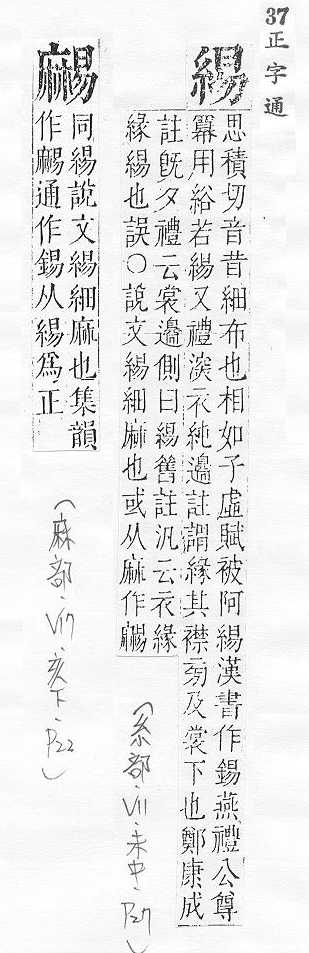 37正字通
緆
思積切音昔細布也相如子虛賦被阿緆漢書作錫燕禮公尊
冪用綌若緆又禮深衣純邊註謂緣其襟旁及裳下也鄭康成
註旣夕禮云裳邊側曰緆舊註汎云衣緣
緣緆也誤○說文緆細麻也或从麻作䴯
（糸部·VII·未中·P27）
䴯
同緆說文緆細麻也集韻
作䴯通作錫从緆為正
（麻部·VII·亥下·P22）